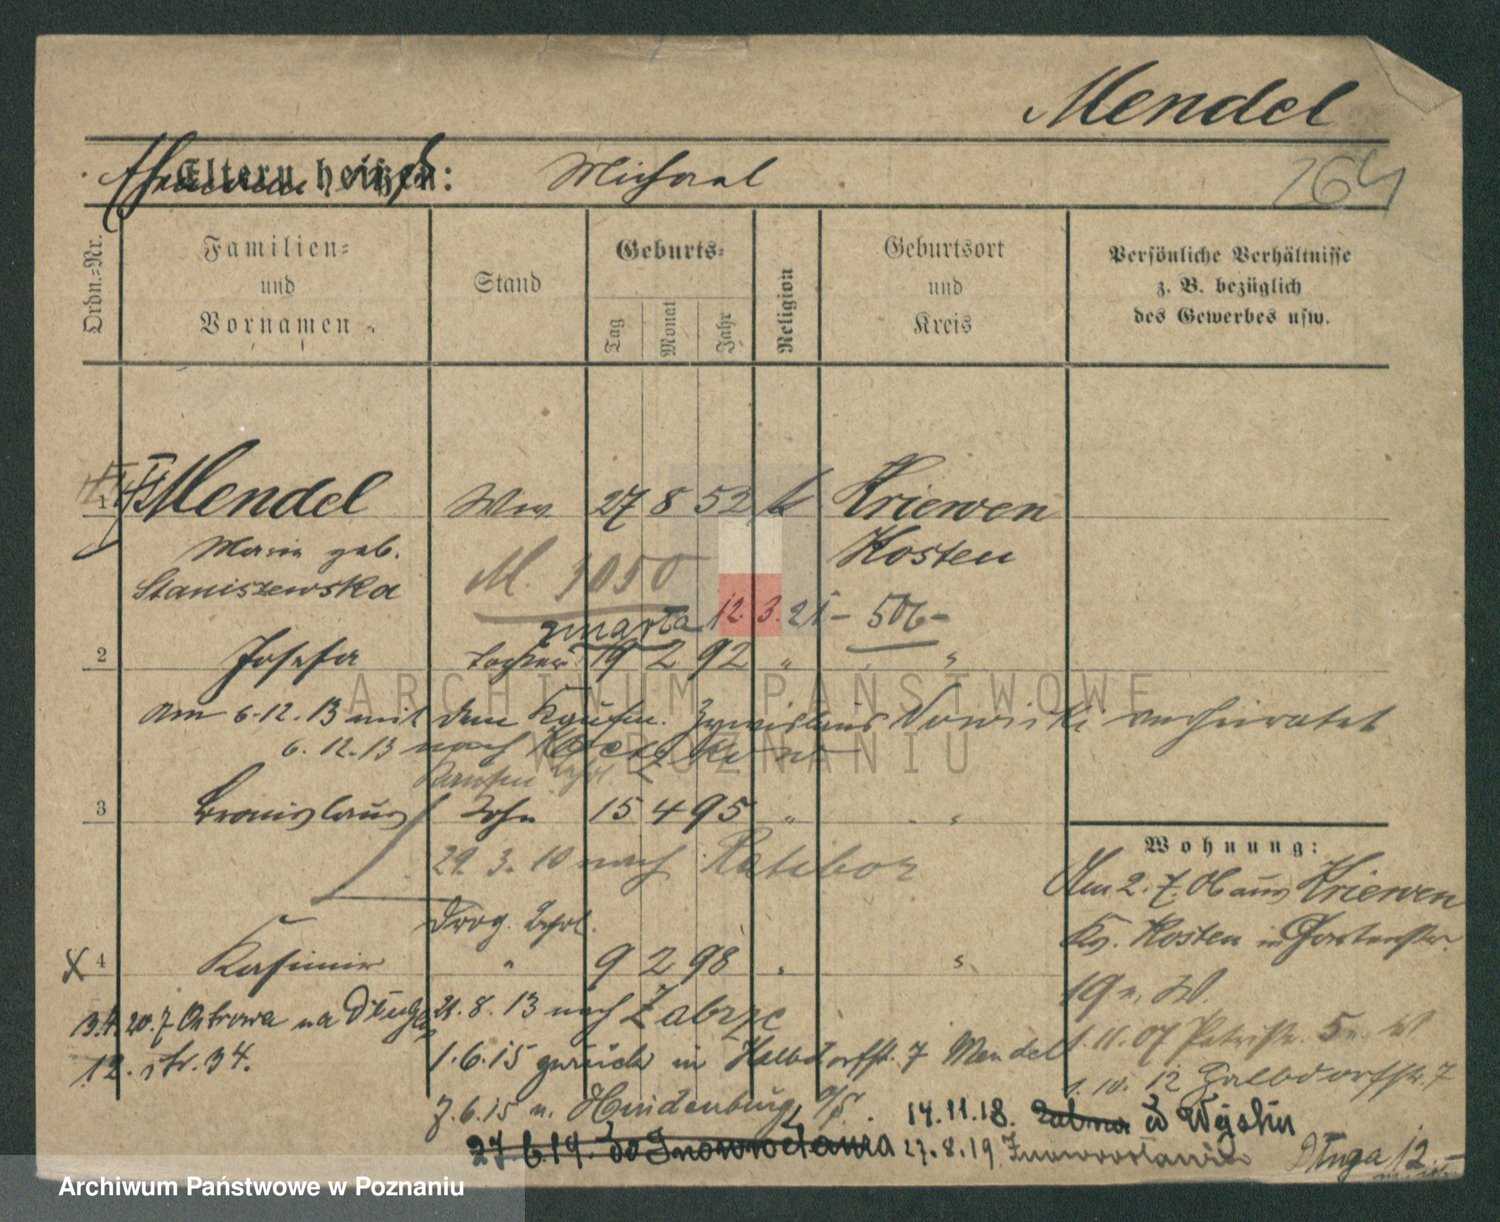 Mendel
Eltern heißen: Michael
264
Ordn.-Nr.
Familien-
und
Vornamen
Stand
Geburts-
Tag
Monat
Jahr
Religion
Geburtsort
und
Kreis
Persönliche Verhältnisse
z. B. bezüglich
des Gewerbes usw.
1 Mendel Ww. 27 8 52 k Kriewen
Maria geb. Kosten
Staniszewska
M. 3050
zmarła 12.3.21 - 506 -
2 Josefa Tochter 19 2 92 " "
Am 6.12.13 mit dem Kaufm. Nowicki verheiratet
6.12.13 nach
Kaufm. Lehrl.
3 Bronislaus Sohn 15 4 95 " "
29.3.10 nach Ratibor
Drog. Lehrl.
4 Kasimir " 9 2 98 " "
21.8.13 nach Zabrze
13.4.20. z Ostrowa na Długą
12. str. 34.
1.6.15 zurück in Halbdorfstr. 7 Mendel
7.6.15 n. Hindenburg O/S.
14.11.18.
27.6.19. do Inowrocławia
27.8.19 Inowrocławia
Długa 12
Wohnung:
Am 2.7.06 aus Kriewen
Kr. Kosten in Gartenstr.
19 n. W.
1.11.07 Petristr. 5 n. W
1.10.12 Halbdorfstr. 7
ARCHIWUM PAŃSTWOWE
W POZNANIU
Archiwum Państwowe w Poznaniu